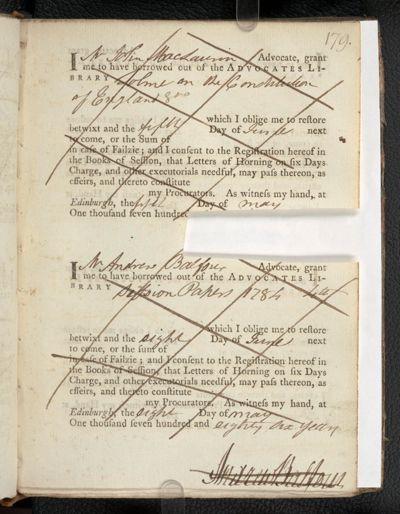 179.
I Mr John Maclaurin Advocate, grant
me to have borrowed out of the ADVOCATES LI-
BRARY Lolme on the Constitution
of England 8vo
which I oblige me to reſtore
betwixt and the fifth Day of June next
to come, or the Sum of
in caſe of Failzie; and I conſent to the Regiſtration hereof in
the Books of Seſſion, that Letters of Horning on ſix Days
Charge, and other executorials needful, may paſs thereon, as
effeirs, and thereto conſtitute
my Procurators. As witneſs my hand, at
Edinburgh, the fifth Day of May
One thouſand ſeven hundred
I Mr Andrew Balfour Advocate, grant
me to have borrowed out of the ADVOCATES LI-
BRARY Session Papers 1784
which I oblige me to reſtore
betwixt and the eight Day of June next
to come, or the ſum of
in caſe of Failzie; and I conſent to the Regiſtration hereof in
the Books of Seſſion, that Letters of Horning on ſix Days
Charge, and other executorials needful, may paſs thereon, as
effeirs, and thereto conſtitute
my Procurators. As witneſs my hand, at
Edinburgh, the eight Day of May
One thouſand ſeven hundred and eighty six years
Andrew Balfour